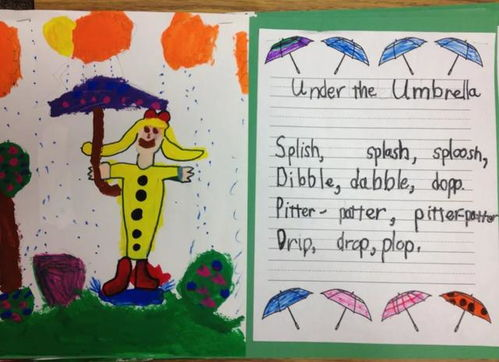 Under the Umbrella
Splish, splash, sploosh,
Dibble, dabble, dopp.
Pitter-patter, pitter-patter
Drip, drop, plop.